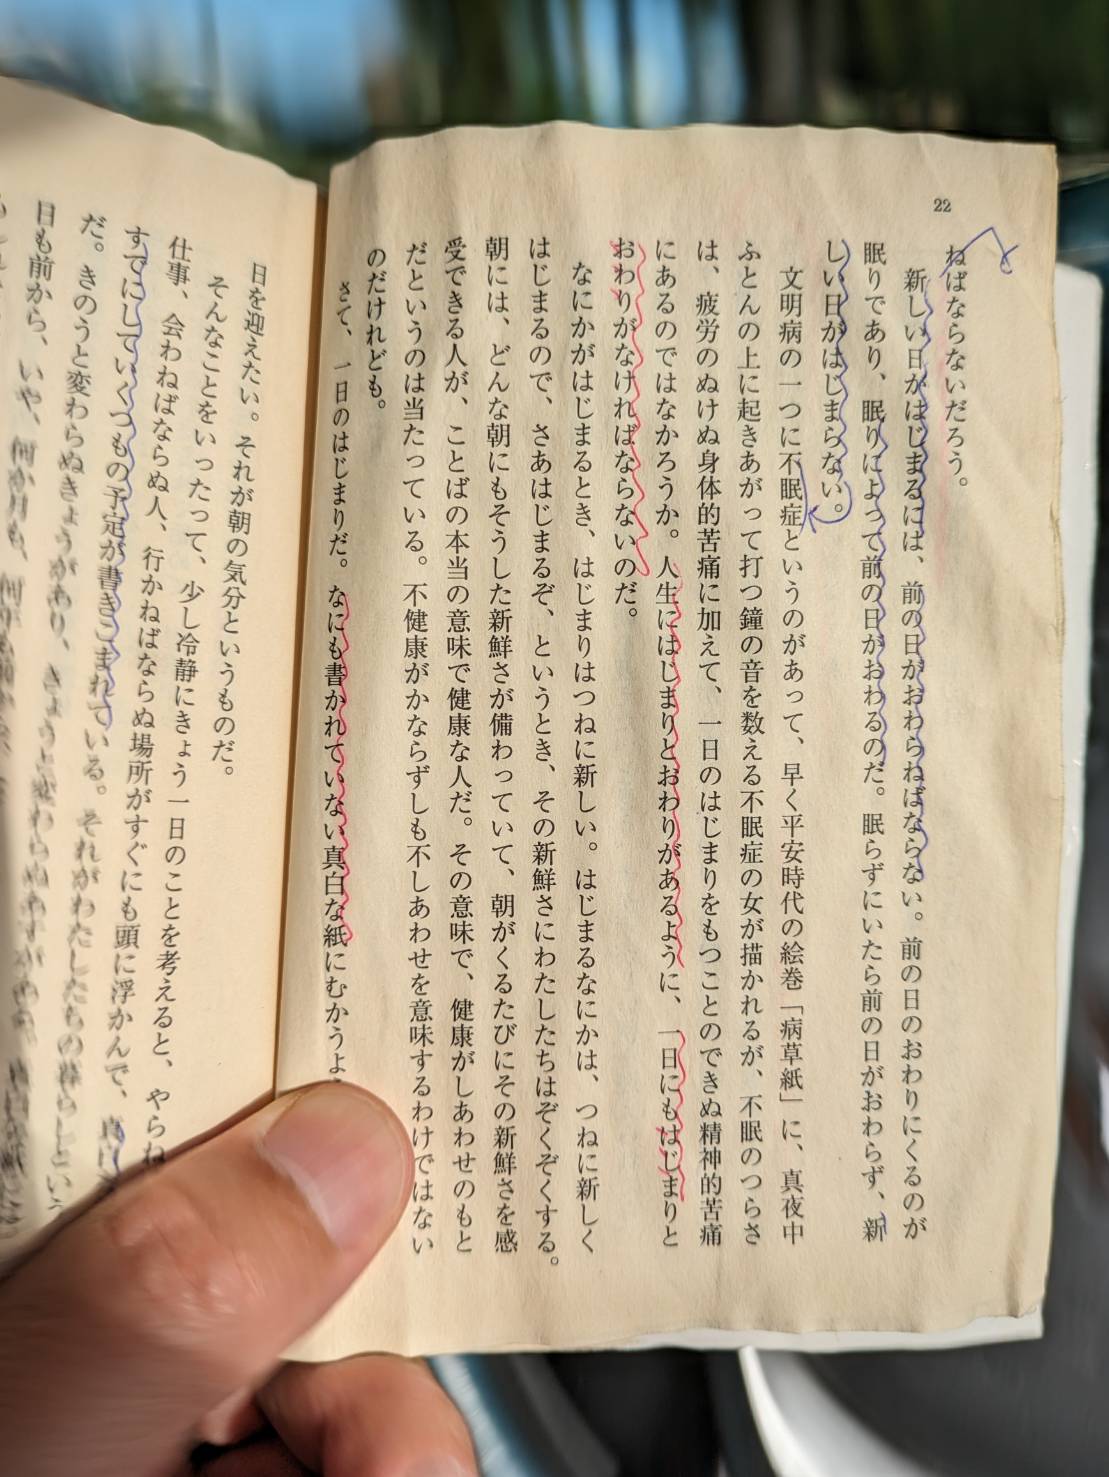 22
ねばならないだろう。
新しい日がはじまるには、前の日がおわらねばならない。前の日のおわりにくるのが
眠りであり、眠りによって前の日がおわるのだ。眠らずにいたら前の日がおわらず、新
しい日がはじまらない。
文明病の一つに不眠症というのがあって、早く平安時代の絵巻「病草紙」に、真夜中
ふとんの上に起きあがって打つ鐘の音を数える不眠症の女が描かれるが、不眠のつらさ
は、疲労のぬけぬ身体的苦痛に加えて、一日のはじまりをもつことのできぬ精神的苦痛
にあるのではなかろうか。人生にはじまりとおわりがあるように、一日にもはじまりと
おわりがなければならないのだ。
なにかがはじまるとき、はじまりはつねに新しい。はじまるなにかは、つねに新しく
はじまるので、さあはじまるぞ、というとき、その新鮮さにわたしたちはぞくぞくする。
朝には、どんな朝にもそうした新鮮さが備わっていて、朝がくるたびにその新鮮さを感
受できる人が、ことばの本当の意味で健康な人だ。その意味で、健康がしあわせのもと
だというのは当たっている。不健康がかならずしも不しあわせを意味するわけではない
のだけれども。
さて、一日のはじまりだ。なにも書かれていない真白な紙にむかうよ
日を迎えたい。それが朝の気分というものだ。
そんなことをいったって、少し冷静にきょう一日のことを考えると、やらね
仕事、会わねばならぬ人、行かねばならぬ場所がすぐにも頭に浮かんで、真
すでにしていくつもの予定が書きこまれている。それがわたしたちの暮らしという
だ。きのうと変わらぬきょうがあり、きょうと変わらぬあすが
日も前から、いや、何か月も、